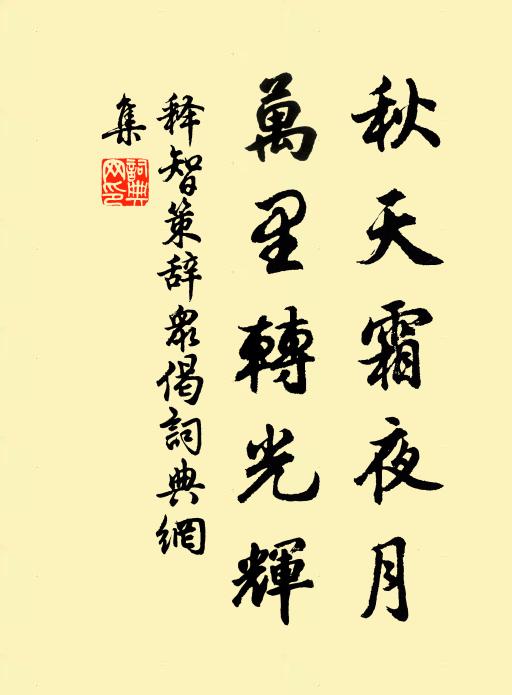 秋天霜夜月
萬里轉光輝
释智策辞衆偈詞典網
集
詞典網印